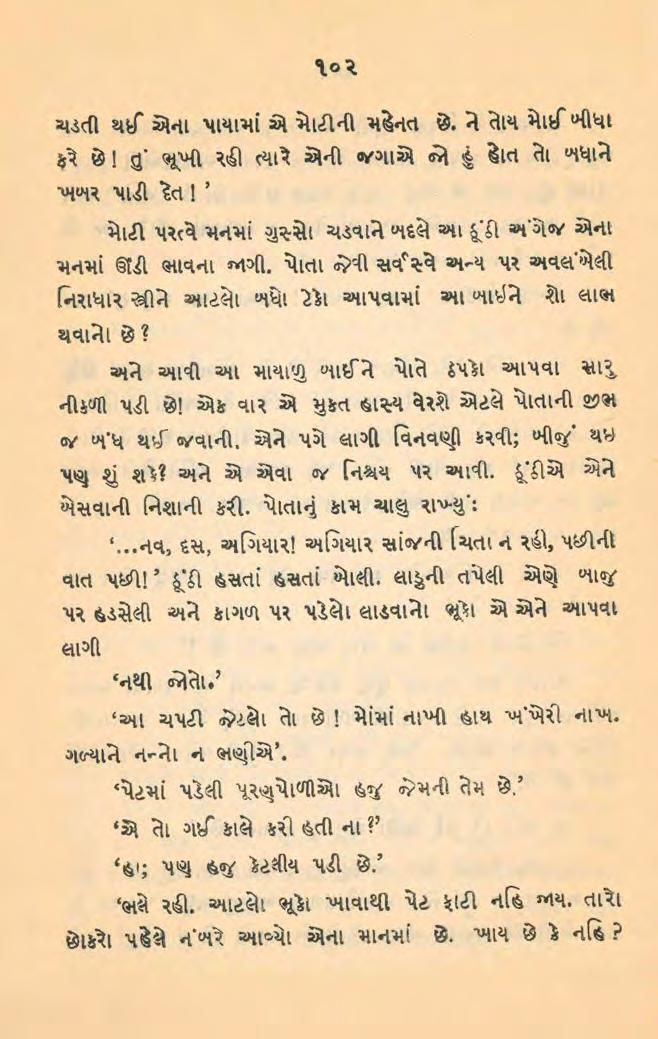 ૧૦૨
ચડતી થઈ એના પાયામાં એ મોટીની મહેનત છે. ને તોય મોઈ બીધા
ફરે છે! તું ભૂખી રહી ત્યારે એની જગાએ જો હું હોત તો બધાને
ખબર પાડી દેત! ’
મોટી પરત્વે મનમાં ગુસ્સો ચડવાને બદલે આ ઠૂંઠી અંગેજ એના
મનમાં ઊંડી ભાવના જાગી. પોતા જેવી સર્વસ્વે અન્ય પર અવલંબેલી
નિરાધાર સ્ત્રીને આટલો બધો ટેકો આપવામાં આ બાઇને શો લાભ
થવાનો છે?
અને આવી આ માયાળુ બાઈને પોતે ઠપકો આપવા સારુ
નીકળી પડી છે! એક વાર એ મુક્ત હાસ્ય વેરશે એટલે પોતાની જીભ
જ બંધ થઈ જવાની. એને પગે લાગી વિનવણી કરવી; બીજું થઇ
પણ શું શકે? અને એ એવા જ નિશ્ચય પર આવી. ઠૂંઠીએ એને
બેસવાની નિશાની કરી. પોતાનું કામ ચાલુ રાખ્યું:
‘...નવ, દસ, અગિયાર! અગિયાર સાંજની ચિંતા ન રહી, પછીની
વાત પછી!’ ઠૂંઠી હસતાં હસતાં બોલી. લાડુની તપેલી એણે બાજુ
પર હડસેલી અને કાગળ પર પડેલો લાડવાનો ભૂકો એ એને આપવા
લાગી
‘નથી જોતો.’
‘આ ચપટી જેટલો તો છે! મોંમાં નાખી હાથ ખંખેરી નાખ.
ગળ્યાને નન્નો ન ભણીએ’.
‘પેટમાં પડેલી પૂરણપોળીઓ હજુ જેમની તેમ છે.’
‘એ તો ગઈ કાલે કરી હતી ના?’
‘હા; પણ હજુ કેટલીય પડી છે.’
‘ભલે રહી. આટલો ભૂકો ખાવાથી પેટ ફાટી નહિ જાય. તારો
છોકરો પહેલે નંબરે આવ્યો એના માનમાં છે. ખાય છે કે નહિ?